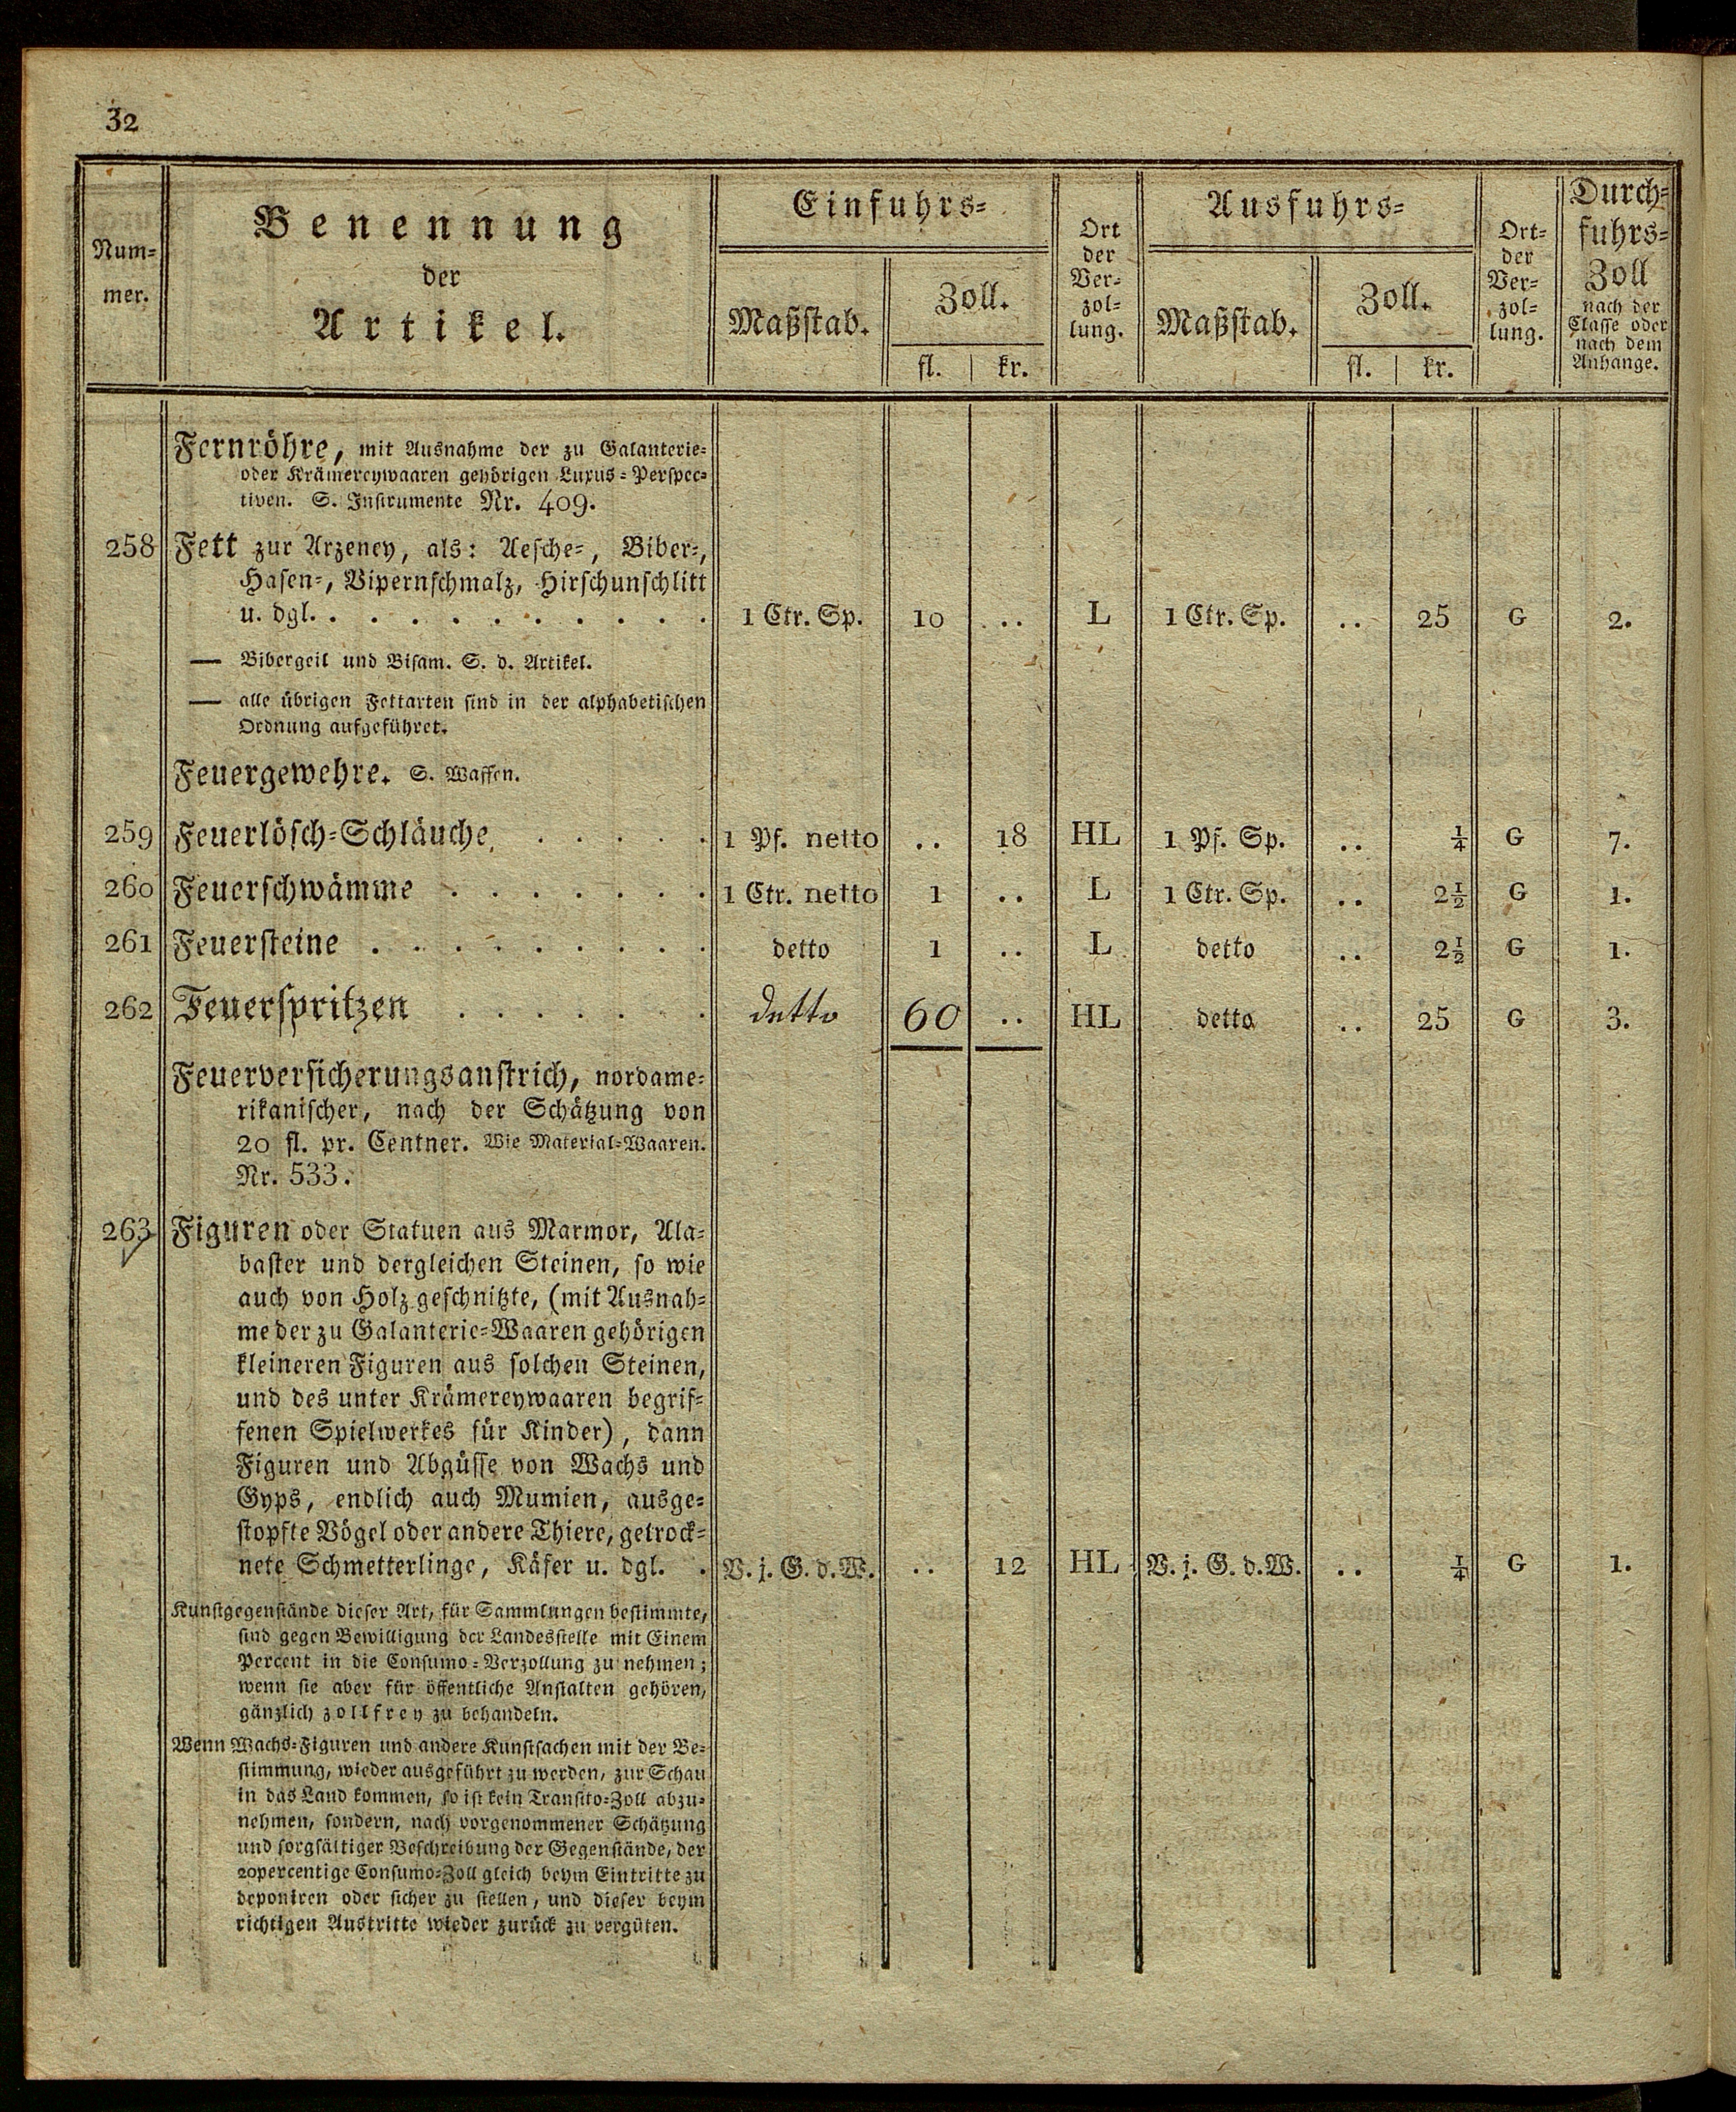 32
Num-
mer.
Benennung
der
Artikel.
Einfuhrs-
Maßstab.
Zoll.
fl. | kr.
Ort
der
Ver-
zol-
lung.
Ausfuhrs-
Maßstab.
Zoll.
fl. | kr.
Ort-
der
Ver-
zol-
lung.
Durch-
fuhrs-
Zoll
nach der
Classe oder
nach dem
Anhange.
Fernröhre, mit Ausnahme der zu Galanterie-
oder Krämereywaaren gehörigen Luxus-Perspec-
tiven. S. Instrumente Nr. 409.
258 Fett zur Arzeney, als: Aesche-, Biber-,
Hasen-, Vipernschmalz, Hirschunschlitt
u. dgl. . . . . . . . . . . 1 Ctr. Sp. 10 .. L 1 Ctr. Sp. .. 25 G 2.
— Bibergeil und Bisam. S. d. Artikel.
— alle übrigen Fettarten sind in der alphabetischen
Ordnung aufgeführet.
Feuergewehre. S. Waffen.
259 Feuerlösch-Schläuche . . . . . 1 Pf. netto .. 18 HL 1 Pf. Sp. .. 1/4 G 7.
260 Feuerschwämme . . . . . . 1 Ctr. netto 1 .. L 1 Ctr. Sp. .. 2 1/2 G 1.
261 Feuersteine . . . . . . . . detto 1 .. L detto .. 2 1/2 G 1.
262 Feuerspritzen . . . . . . detto 60 .. HL detto .. 25 G 3.
Feuerversicherungsanstrich, nordame-
rikanischer, nach der Schätzung von
20 fl. pr. Centner. Wie Material-Waaren.
Nr. 533.
263 Figuren oder Statuen aus Marmor, Ala-
baster und dergleichen Steinen, so wie
auch von Holz geschnitzte, (mit Ausnah-
me der zu Galanterie-Waaren gehörigen
kleineren Figuren aus solchen Steinen,
und des unter Krämereywaaren begrif-
fenen Spielwerkes für Kinder), dann
Figuren und Abgüsse von Wachs und
Gyps, endlich auch Mumien, ausge-
stopfte Vögel oder andere Thiere, getrock-
nete Schmetterlinge, Käfer u. dgl. . V. j. G. d. W. .. 12 HL V. j. G. d. W. .. 1/4 G 1.
Kunstgegenstände dieser Art, für Sammlungen bestimmte,
sind gegen Bewilligung der Landesstelle mit Einem
Percent in die Consumo-Verzollung zu nehmen;
wenn sie aber für öffentliche Anstalten gehören,
gänzlich zollfrey zu behandeln.
Wenn Wachs-Figuren und andere Kunstsachen mit der Be-
stimmung, wieder ausgeführt zu werden, zur Schau
in das Land kommen, so ist kein Transito-Zoll abzu-
nehmen, sondern, nach vorgenommener Schätzung
und sorgfältiger Beschreibung der Gegenstände, der
20percentige Consumo-Zoll gleich beym Eintritte zu
deponiren oder sicher zu stellen, und dieser beym
richtigen Austritte wieder zurück zu vergüten.